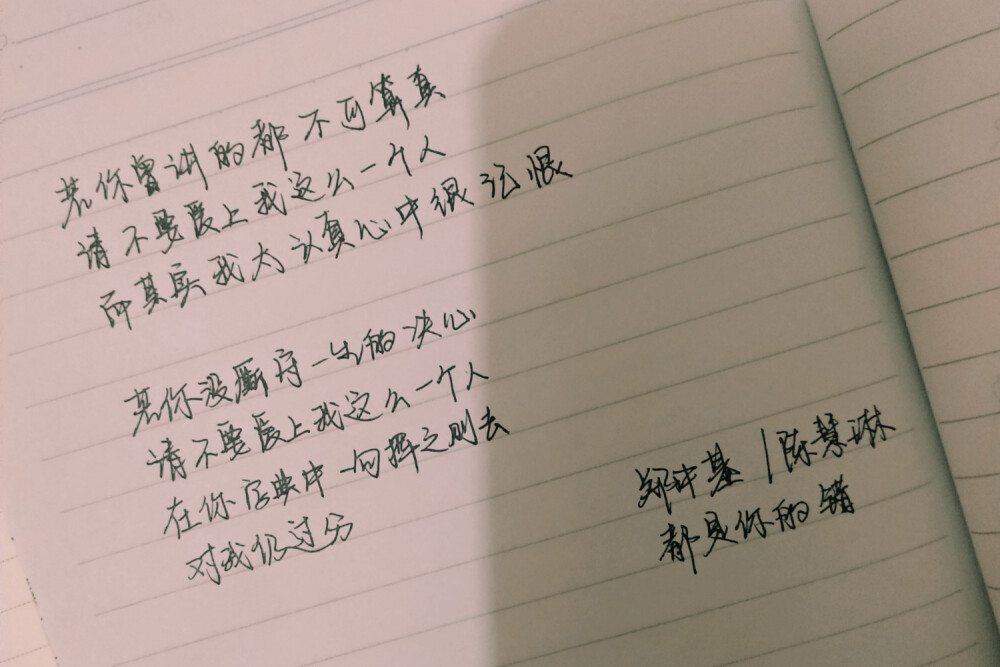 若你曾讲的都不可算真
请不要爱上我这么一个人
而其实我太认真心中很记恨
若你没厮守一生的决心
请不要爱上我这么一个人
在你字典中一向挥之则去
对我似过分
郑中基 | 陈慧琳
都是你的错